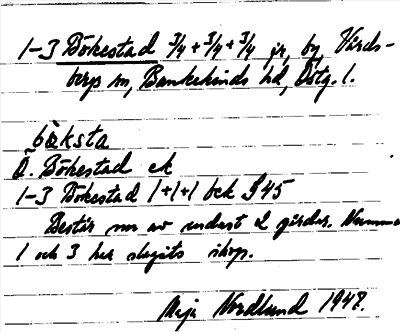 1-3 Bökestad 3/4+3/4+3/4 jr, by Vårds-
bergs sn, Bankekinds hd, Östg. l.
bö̀ksta
Ö. Bökestad ek
1-3 Bökestad 1+1+1 bek §45
Består nu av endast 2 gårdar. Numme
1 och 3 har slagits ihop.
Maja Nordlund 1948.